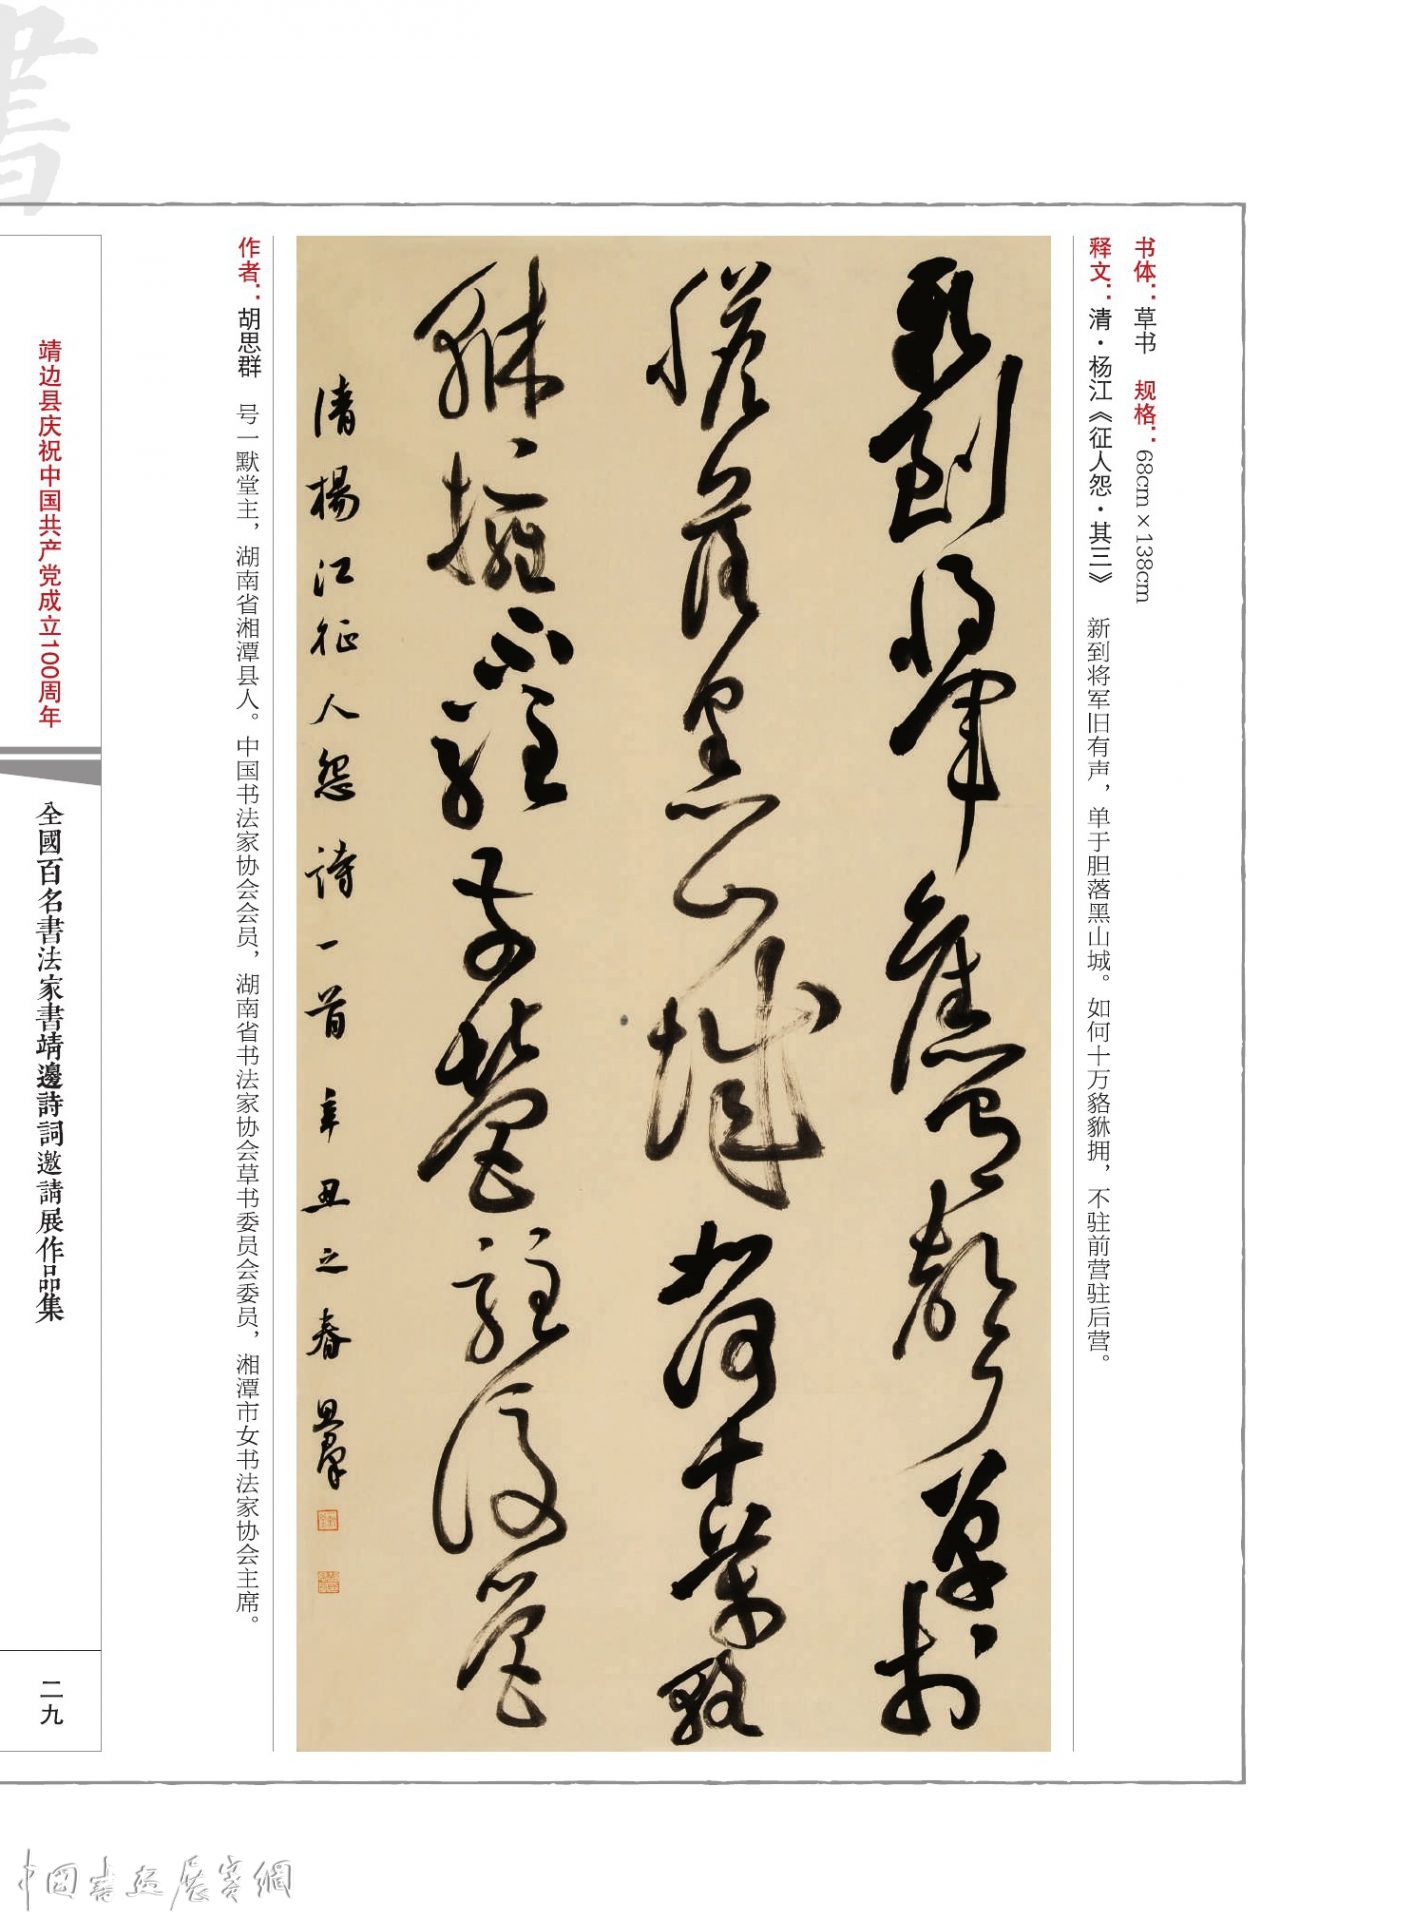 书体：草书 规格：68cm×138cm
释文：清·杨江《征人怨·其三》 新到将军旧有声，单于胆落黑山城。如何十万貉貅拥，不驻前营驻后营。
新到將軍舊有聲單於
膽落黑山城如何十萬貉
貅擁不駐前營駐後營
清楊江征人怨詩一首辛丑之春思羣
作者：胡思群 号一默堂主，湖南省湘潭县人。中国书法家协会会员，湖南省书法家协会草书委员会委员，湘潭市女书法家协会主席。
書
靖边县庆祝中国共产党成立100周年
全國百名書法家書靖邊詩詞邀請展作品集
二九
中國書画展賽網